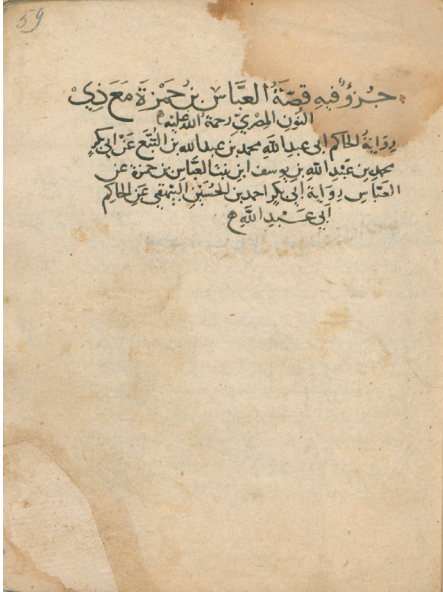 59
جزؤ فيه قصة العباس بن حمزة مع ذي
النون المصري رحمة الله عليه
رواية الحاكم ابي عبد الله محمد بن عبد الله بن البيع عن ابي بكر
محمد بن عبد الله بن يوسف ابن بنت العباس بن حمزة عن
العباس رواية ابي بكر احمد بن الحسين البيهقي عن الحاكم
ابي عبد الله